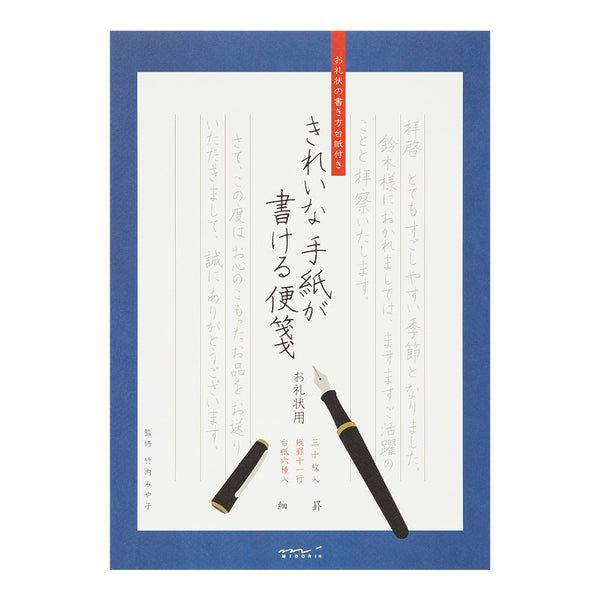 お礼状の書き方台紙付き
拝啓　とてもすごしやすい季節となりました。
鈴木様におかれましては、ますますご活躍の
ことと拝察いたします。
きれいな手紙が
書ける便箋
お礼状用
三十枚入
縦罫十一行
台紙六種入
細　罫
さて、この度はお心のこもったお品をお送り
いただきまして、誠にありがとうございます。
監修　竹内みや子
MIDORI